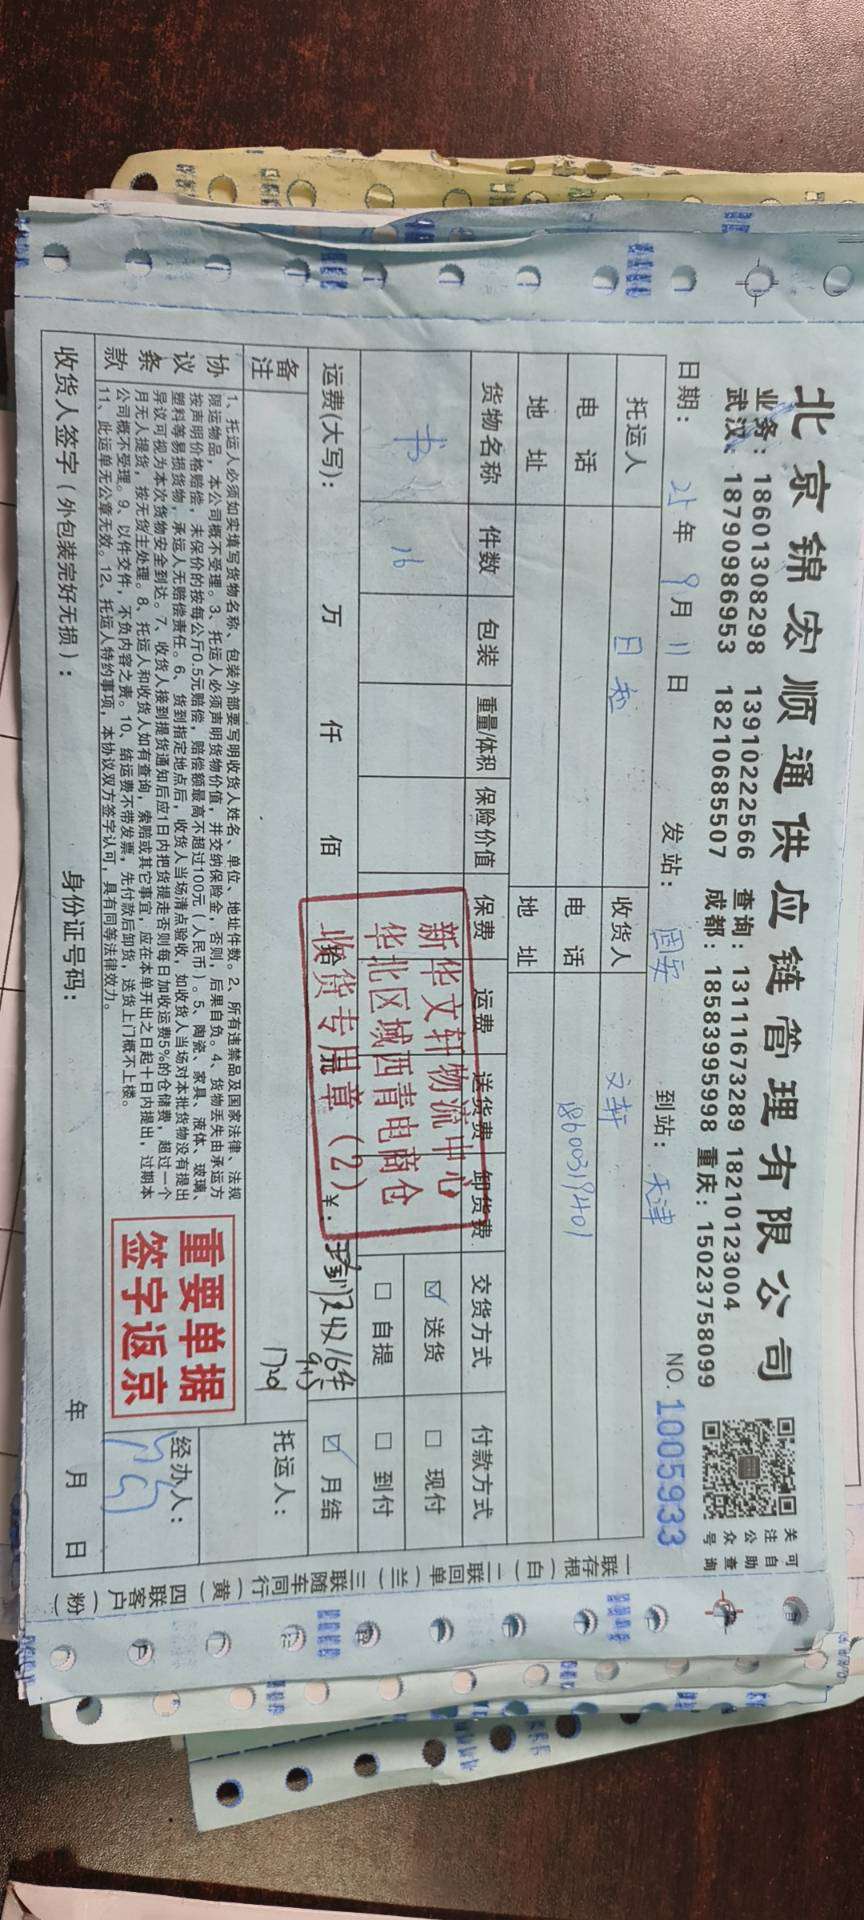 北京锦宏顺通供应链管理有限公司
业务：18601308298 13910222566 查询：13111673289 18210123004
武汉：18790986953 18210685507 成都：18583995998 重庆：15023758099
关注公众号
可自助查询
日期：25年9月11日 发站：固安 到站：天津 NO.1005933
托运人 日和 收货人 文轩
电话 电话 18600319401
地址 地址
货物名称 件数 包装 重量/体积 保险价值 保费 运费 送货费 卸货费 交货方式 付款方式
书 26 ☑送货 □现付
□自提 □到付
运费(大写)： 万 仟 佰 ¥： ☑月结
新华文轩物流中心
华北区域西青电商仓
收货专用章（2）
备注
托运人：
协议条款
1、托运人必须如实填写货物名称、包装外部要写明收货人姓名、单位、地址件数。2、所有违禁品及国家法律、法规
限运物品，本公司概不受理。3、托运人必须声明货物价值，并交纳保险金，否则，后果自负。4、货物丢失由承运方
按声明价格赔偿，未保价的按每公斤0.5元赔偿，赔偿额最高不超过100元（人民币）。5、陶瓷、家具、液体、玻璃、
塑料等易损货物，承运人无赔偿责任。6、货到指定地点后，收货人当场清点验收，如收货人当场对本批货物没有提出
异议可视为本次货物安全到达。7、收货人接到提货通知后应1日内把货提走否则每日加收运费5%的仓储费，超过一个
月无人提货，按无货主处理。8、托运人和收货人如有查询，索赔或其它事宜，应在本单开出之日起十日内提出，过期本
公司概不受理。9、以件交件，不负内容之责。10、结运费不带发票，先付款后卸货，送货上门概不上楼。
11、此运单无公章无效。12、托运人特约事项，本协议双方签字认可，具有同等法律效力。
重要单据
签字返京
经办人：
收货人签字（外包装完好无损）： 身份证号码： 年 月 日
一联存根（白）二联回单（兰）三联随车同行（黄）四联客户（粉）